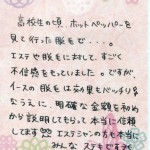 高校生の頃、ホットペッパーを
見て行った脱毛ゼ···。
エステや脱毛に対して、すごく
不信感をもっていました。ですが、
イースの脱毛は効果もバッチリ
なうえに、明確な金額を初め
から説明してもらって本当に信頼
してます エステシャンの方も本当に
みんなステキですね